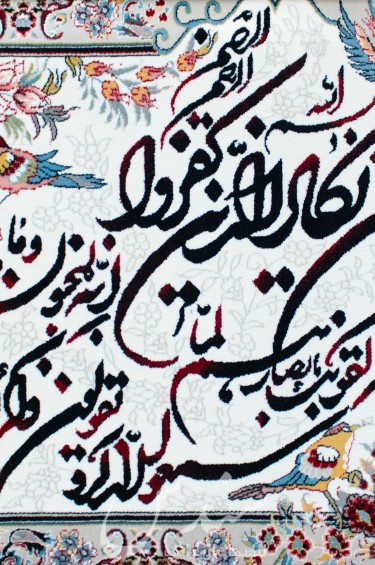 الله الرحمن الرحیم
یکاد الذین کفروا
لقونک بابصارهم لما
سمعوا الذکر و یقولون
انه لمجنون و ما